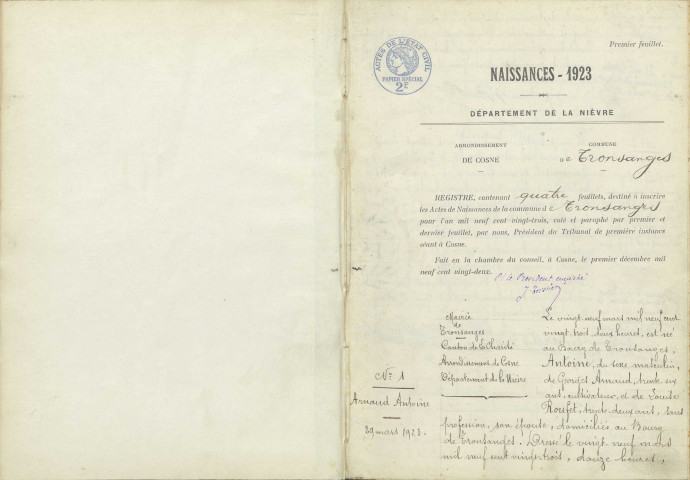 Premier feuillet.
ACTES DE L'ÉTAT CIVIL
PAPIER SPÉCIAL
2F
NAISSANCES - 1923
DÉPARTEMENT DE LA NIÈVRE
ARRONDISSEMENT
DE COSNE
COMMUNE
de Tronsanges
REGISTRE, contenant quatre feuillets, destiné à inscrire
les Actes de Naissances de la commune de Tronsanges
pour l'an mil neuf cent vingt-trois, coté et paraphé par premier et
dernier feuillet, par nous, Président du Tribunal de première instance
séant à Cosne.
Fait en la chambre du conseil, à Cosne, le premier décembre mil
neuf cent vingt-deux.
Le Président empêché
Mairie
de
Tronsanges
Canton de la Charité
Arrondissement de Cosne
Département de la Nièvre
N° 1
Arnaud Antoine
29 mars 1923.
Le vingt neuf mars mil neuf cent
vingt trois deux heures, est né
au Bourg de Tronsanges,
Antoine, du sexe masculin,
de Arnaud, trente six
ans, cultivateur, et de Louise
trente deux ans, sans
profession, son épouse, domiciliés au Bourg
de Tronsanges. Dressé le vingt neuf mars
mil neuf cent vingt trois, douze heures,